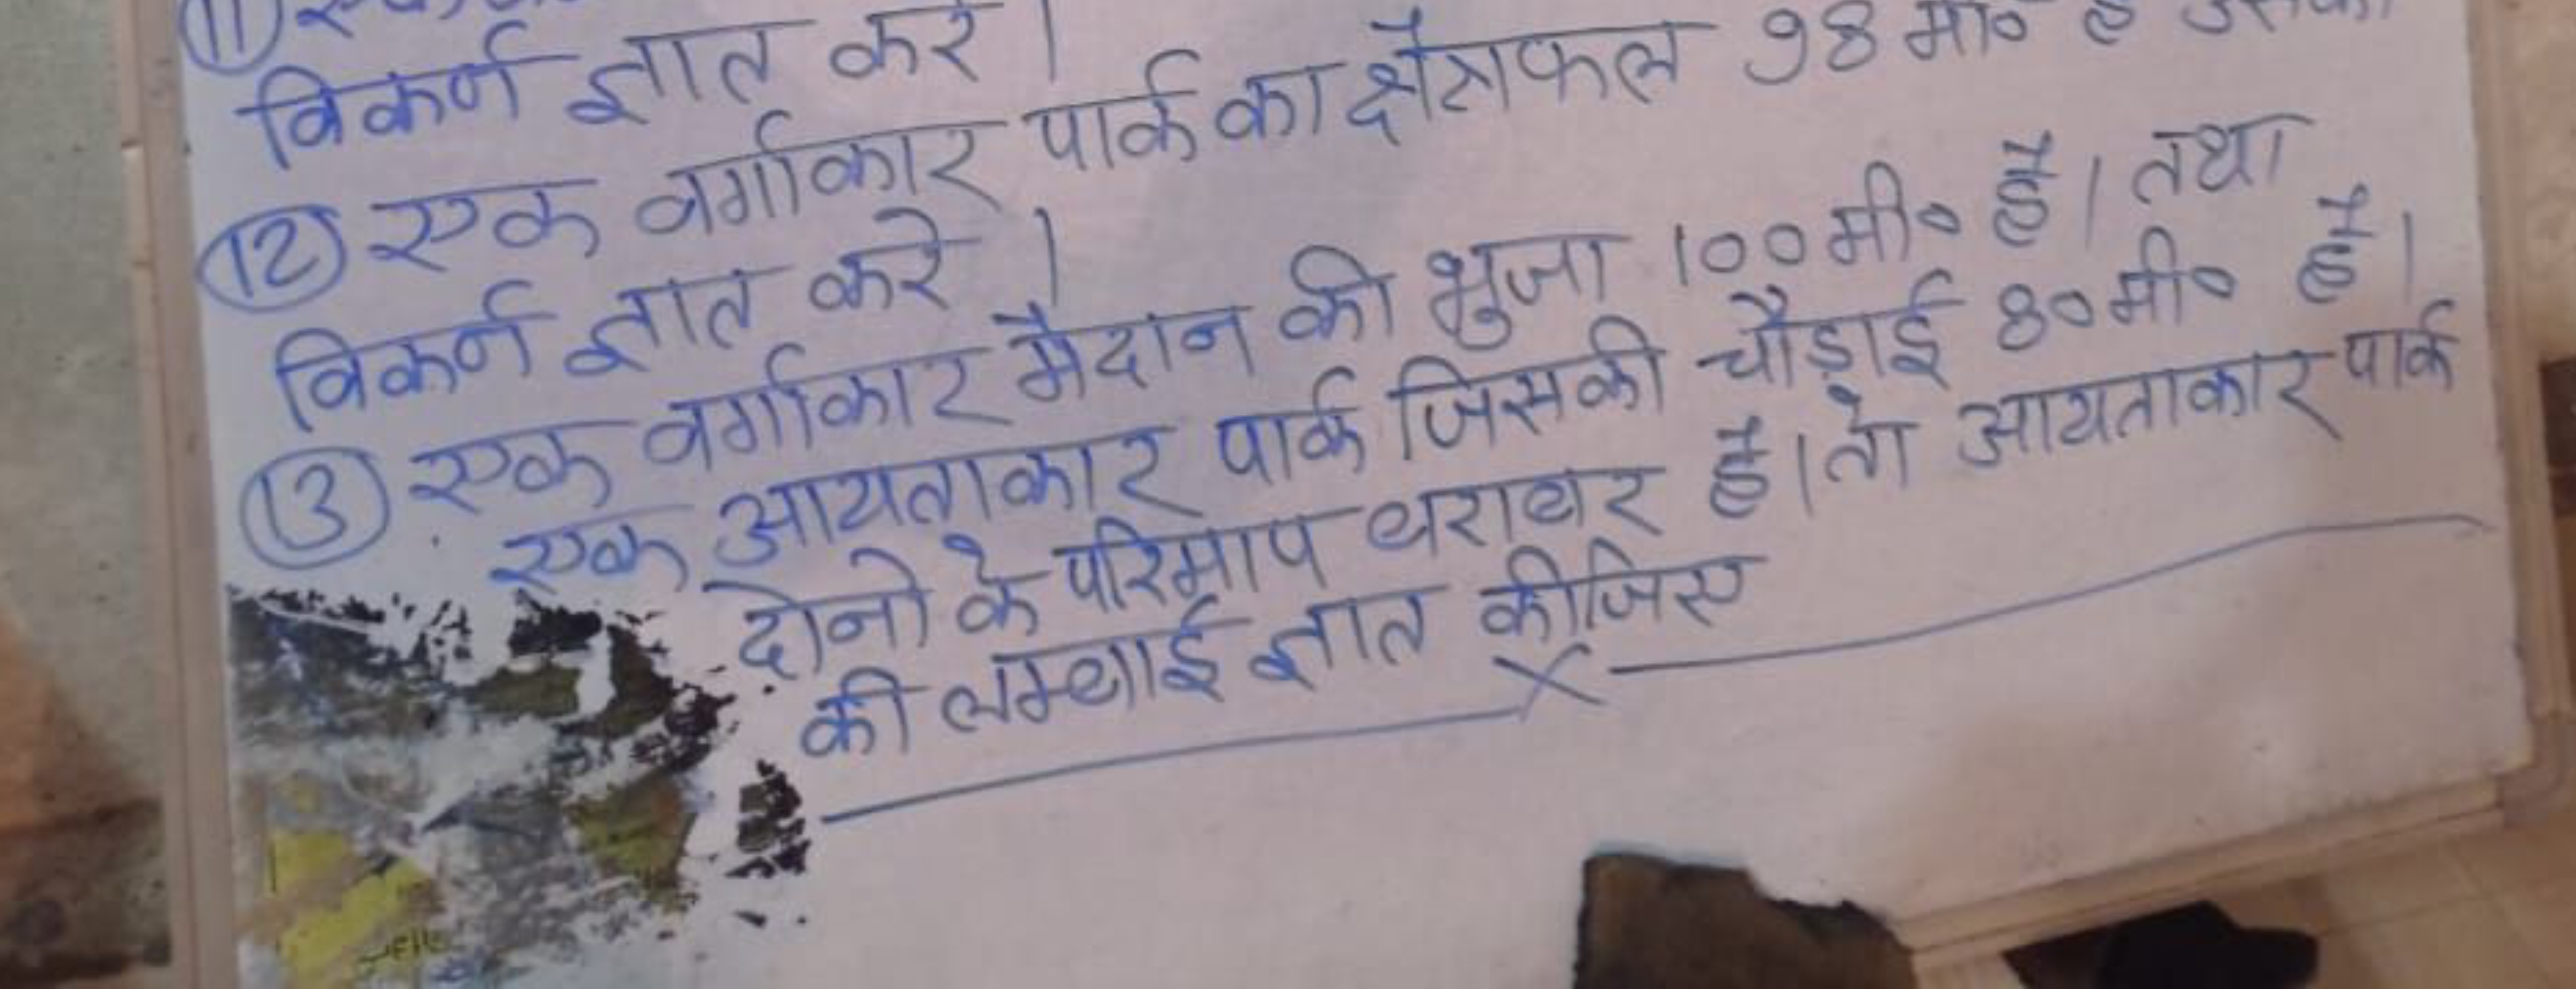 (11) एक
विकर्ण ज्ञात करें।
(12) एक वर्गाकार पार्क का क्षेत्रफल 98 मी० है उसका
विकर्ण ज्ञात करे।
(13) एक वर्गाकार मैदान की भुजा 100 मी० है। तथा
एक आयताकार पार्क जिसकी चौड़ाई 80 मी० है।
दोनो के परिमाप बराबर है। तो आयताकार पार्क
की लम्बाई ज्ञात कीजिए